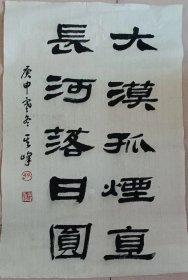 大漠孤煙直
長河落日圓
庚申寒冬